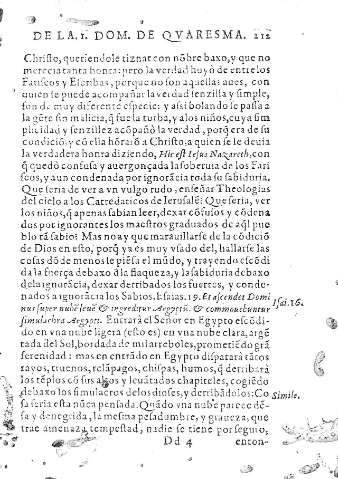 DE LA.1. DOM. DE QVARESMA. 212
Christo, queriendole tiznar con nõbre baxo, y que no
merecia tanta honra: pero la verdad huyò de entre los
Fariseos y Escribas, porque no son aquellas aues, con
quien se puede acompañar la verdad senzilla y simple,
son de muy diferente especie: y assi bolando se passa a
la gẽte sin malicia, q̃ fue la turba, y a los niños, cuya sim
plicidad y senzillez acõpañò la verdad, porq̃ era de su
condiciõ: y cõ ella hõrarõ a Christo, a quien se le deuia
la verdadera honra diziendo, Hic est Iesus Nazareth, con
q̃ quedò confusa y auergonçada la soberuia de los Fari
seos, y aun condenada por ignorãcia toda su sabiduria.
Que seria de ver a vn vulgo rudo, enseñar Theologias
del cielo a los Catredaticos de Ierusalẽ: Que seria, ver
los niños, q̃ apenas sabian leer, dexar cõfusos y cõdena
dos por ignorantes los maestros graduados de aq̃l pue
blo tã sabio: Mas no ay que marauillarse de la cõdiciõ
de Dios en esto, porq̃ ya es muy vsado del, hallarse las
cosas dõ de menos le piẽsa el mũdo, y trayendo escõdi
da la fuerça debaxo d̃ la flaqueza, y la sabiduria debaxo
de la ignorãcia, dexar derribados los fuertes, y conde-
nados a ignorãcia los Sabios. Esaias.19. Et ascendet Domi
nus super nubẽ leuẽ & ingredetur Aegyptũ. & commouebuntur
simulachra Aegypti. Entrarà el Señor en Egypto escõdi
do en vna nube ligera (esso es) en vna nube clara, argẽ
tada del Sol, bordada de mil arreboles, prometiẽdo grã
serenidad: mas en entrãdo en Egypto dispararà tãtos
rayos, truenos, relãpagos, chispas, humos, q̃ derribarà
los tẽplos cõ sus altos y leuãtados chapiteles, cogiẽdo
debaxo los simulacros de los dioses, y derribãdolos: Co
sa seria esta nũca pensada. Quãdo vna nube parece dẽ-
sa y denegrida, la mesma pesadumbre, y graueza, que
trae amenaza tempestad, nadie se tiene por seguro,
Isai.16.
Simile.
Dd 4 enton-